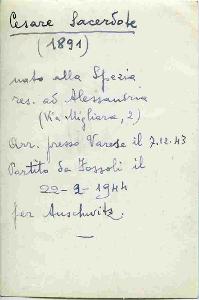 Cesare Sacerdote
(1891)
nato alla Spezia
res. ad Alessandria
(Via Migliara, 2)
Arr. presso Varese il 7.12.43
Partito da Fossoli il
22-2-1944
per Auschwitz.